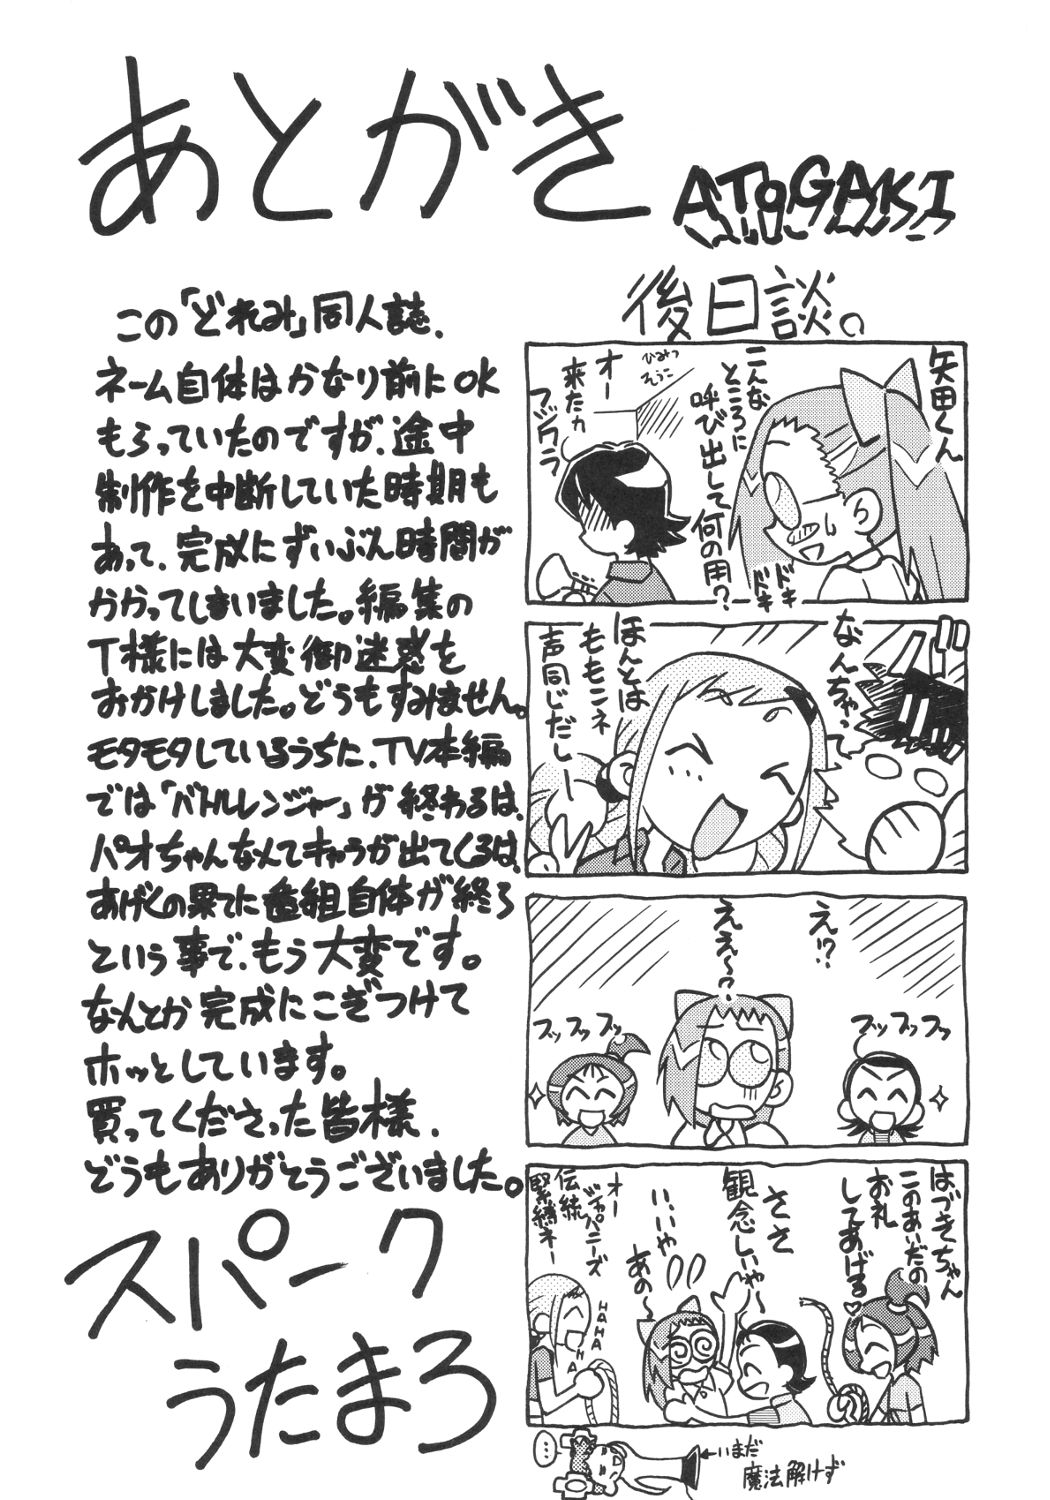 あとがき
ATOGAKI
この「どれみ」同人誌、
ネーム自体はかなり前にOK
もらっていたのですが、途中
制作を中断していた時期も
あって、完成にずいぶん時間が
かかってしまいました。編集の
T様には大変御迷惑を
おかけしました。どうもすみません。
モタモタしているうちに、TV本編
では「バトルレンジャー」が終わるは、
パオちゃんなんてキャラが出てくるは、
あげくの果てに番組自体が終る
という事で、もう大変です。
なんとか完成にこぎつけて
ホッとしています。
買ってくださった皆様、
どうもありがとうございました。
スパーク
うたまろ
後日談。
矢田くん
こんな
ところに
呼び出して何の用?
ドキ
ドキ
ひみつ
そうこ
オー
来たカ
フヅクラ
なんちゃっ
ほんとは
ももこネ
声同じだしー
え!?
ええ〜っ?
プップップッ
プップップッ
はづきちゃん
このあいだの
お礼
してあげる
ささ
観念しぃや〜
い、いや
あの〜
オー
ジャパニーズ
伝統
緊縛ネー
HAHA
HAHA
HA
…
←いまだ
魔法解けず